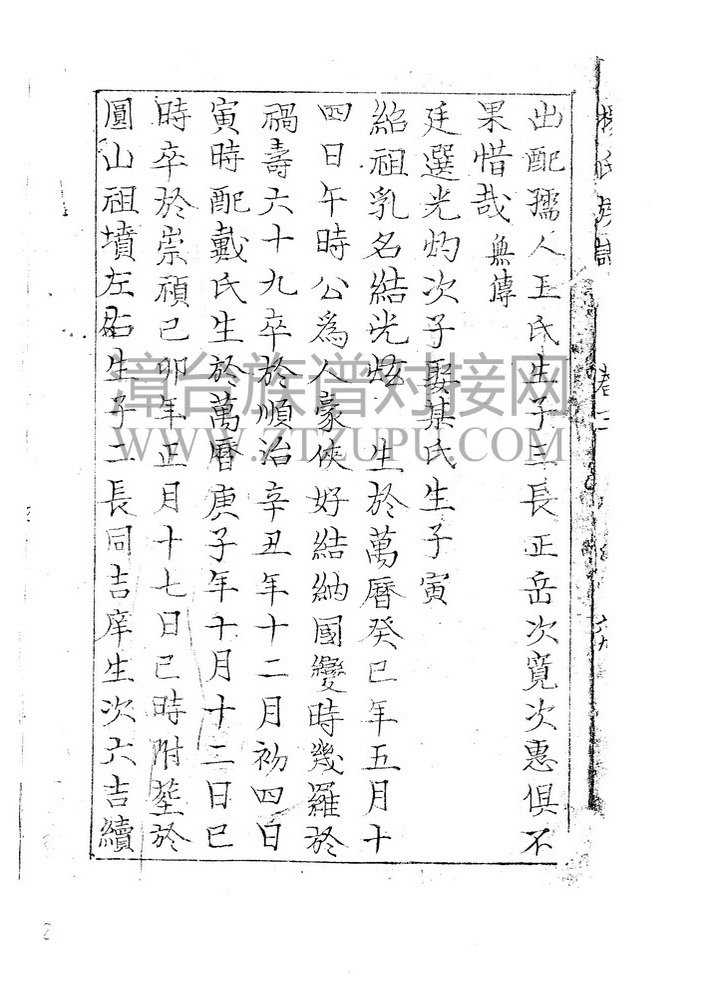 楊氏族譜 卷
出配孺人王氏生子三長正岳次寬次惠俱不
果惜哉 無傳
廷選光灼次子娶某氏生子寅
紹祖乳名結光炫 生於萬曆癸巳年五月十
四日午時公為人豪俠好結納國變時幾羅於
禍壽六十九卒於順治辛丑年十二月初四日
寅時配戴氏生於萬曆庚子年十月十二日巳
時卒於崇禎己卯年正月十七日巳時附塟於
圓山祖墳左右生子二長同吉庠生次六吉續
漳台族谱对接网
WWW.ZTZUPU.COM